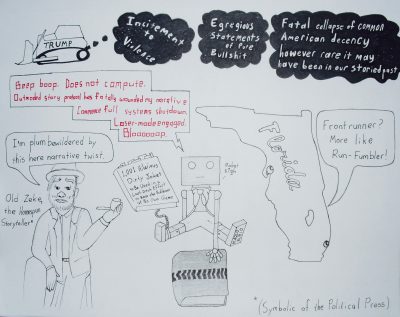 TRUMP
Incitement
to
Violence
Egregious
Statements
of Pure
Bullshit
Fatal collapse of common
American decency
however rare it may
have been in our storied past
Beep boop. Does not compute.
Outmoded story protocol has fatally wounded my narrative
Commence full systems shutdown.
Loser-mode engaged.
Blooooooop.
I'm plum bewildered by
this here narrative twist.
Old Zeke,
the Homespun
Storyteller*
1,001 Hilarious
Dirty Jokes
Florida
Frontrunner?
More like
Run-Fumbler!
*(Symbolic of the Political Press)